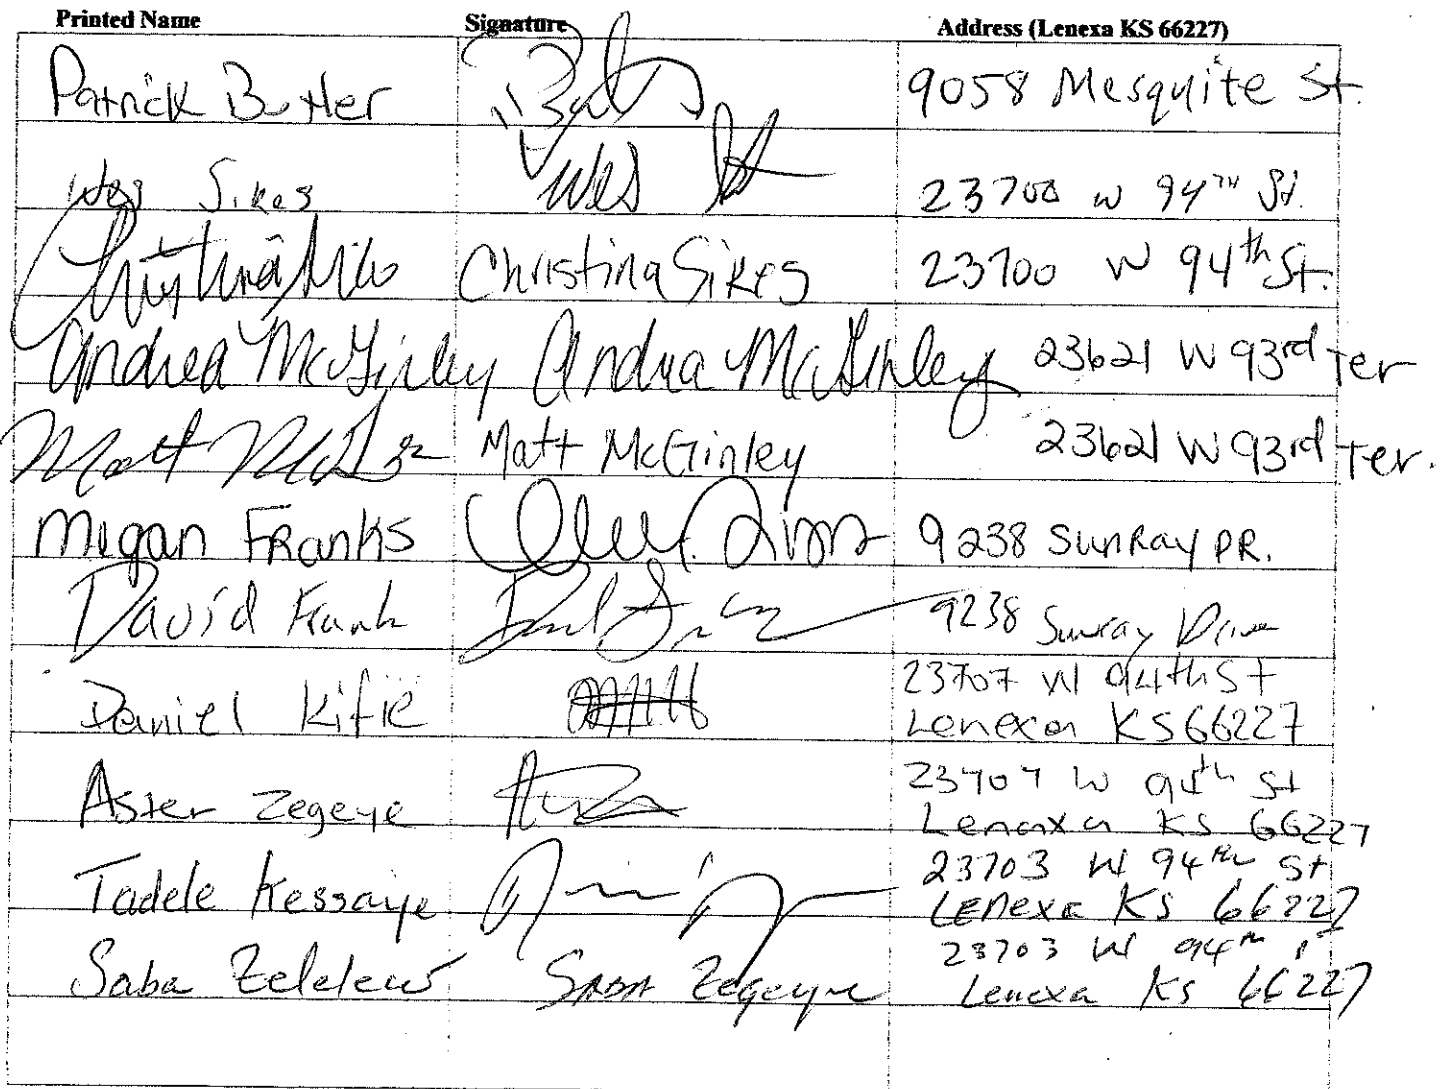 Printed Name Signature Address (Lenexa KS 66227)
Patrick Butler 9058 Mesquite St.
Wes Sikes Wes 23700 W 94TH St.
Christina Sikes Christina Sikes 23700 W 94th St.
Andrea McGinley Andrea McGinley 23621 W 93rd Ter
Matt McGinley Matt McGinley 23621 W 93rd Ter.
Megan Franks 9238 SunRay DR.
David Frank 9238 Sunray Drive
Daniel Kifie 23707 W 94th St
Lenexa KS 66227
Aster Zegeye 23707 W 94th St
Lenexa KS 66227
Tadele Kessaye 23703 W 94th St
Lenexa KS 66227
Saba Zelelew Saba Zegeye 23703 W 94th St
Lenexa KS 66227